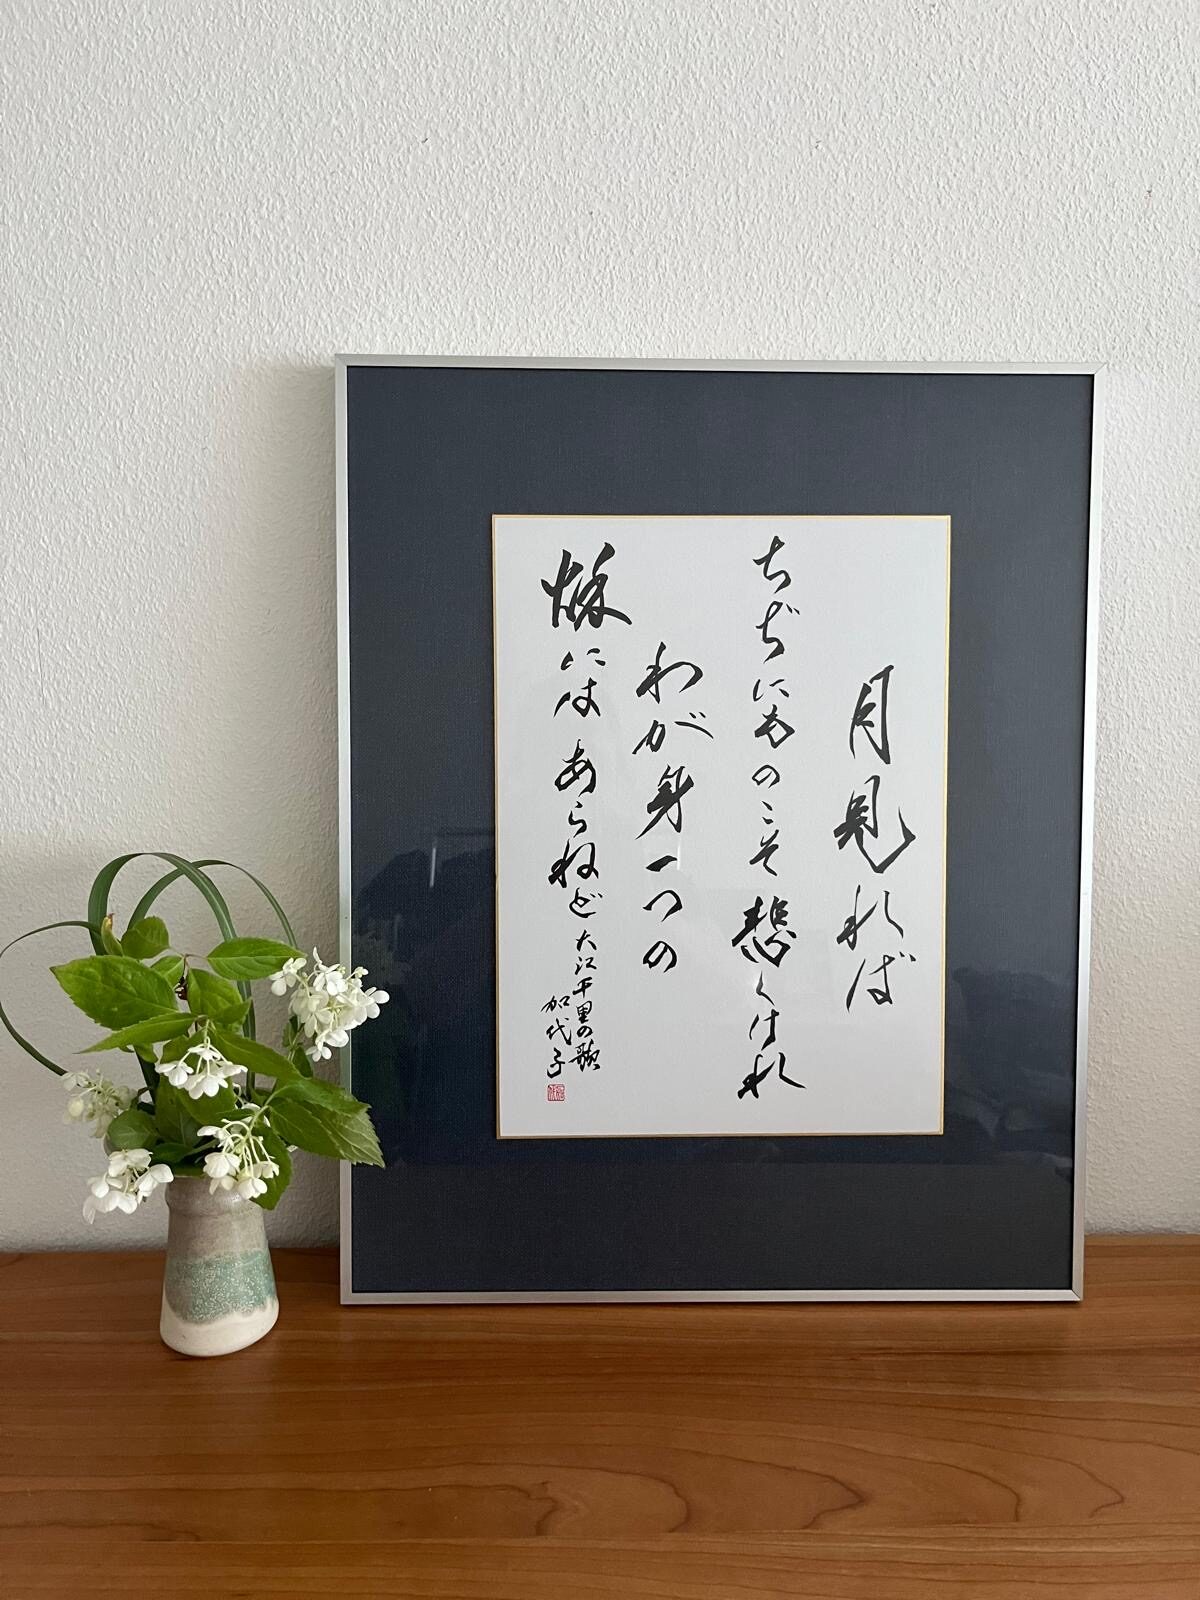 月見れば
ちぢにものこそ
悲しけれ
わが身一つの
秋には あらねど
大江千里の歌
加代子